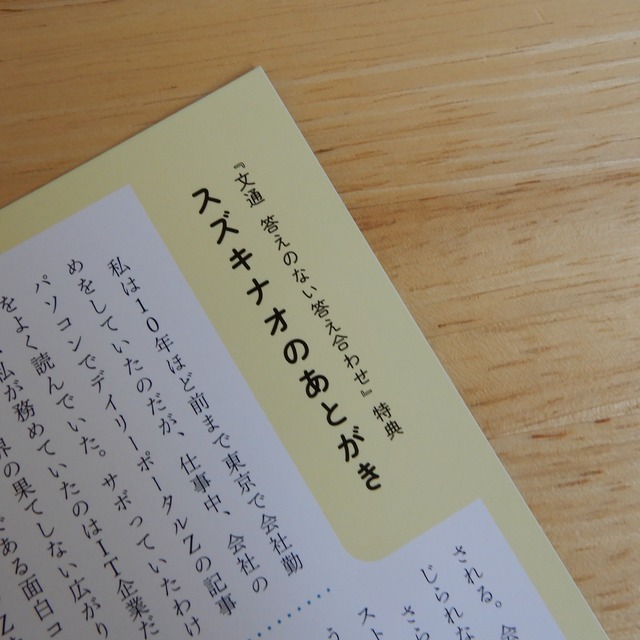 『文通 答えのない答え合わせ』特典
スズキナオのあとがき
私は10年ほど前まで東京で会社勤
めをしていたのだが、仕事中、会社の
パソコンでデイリーポータルZの記事
をよく読んでいた。サボっていたわけ
私が務めていたのはIT企業だ
界の果てしない広がり
ある面白コ
される。
じられな
さら
スト